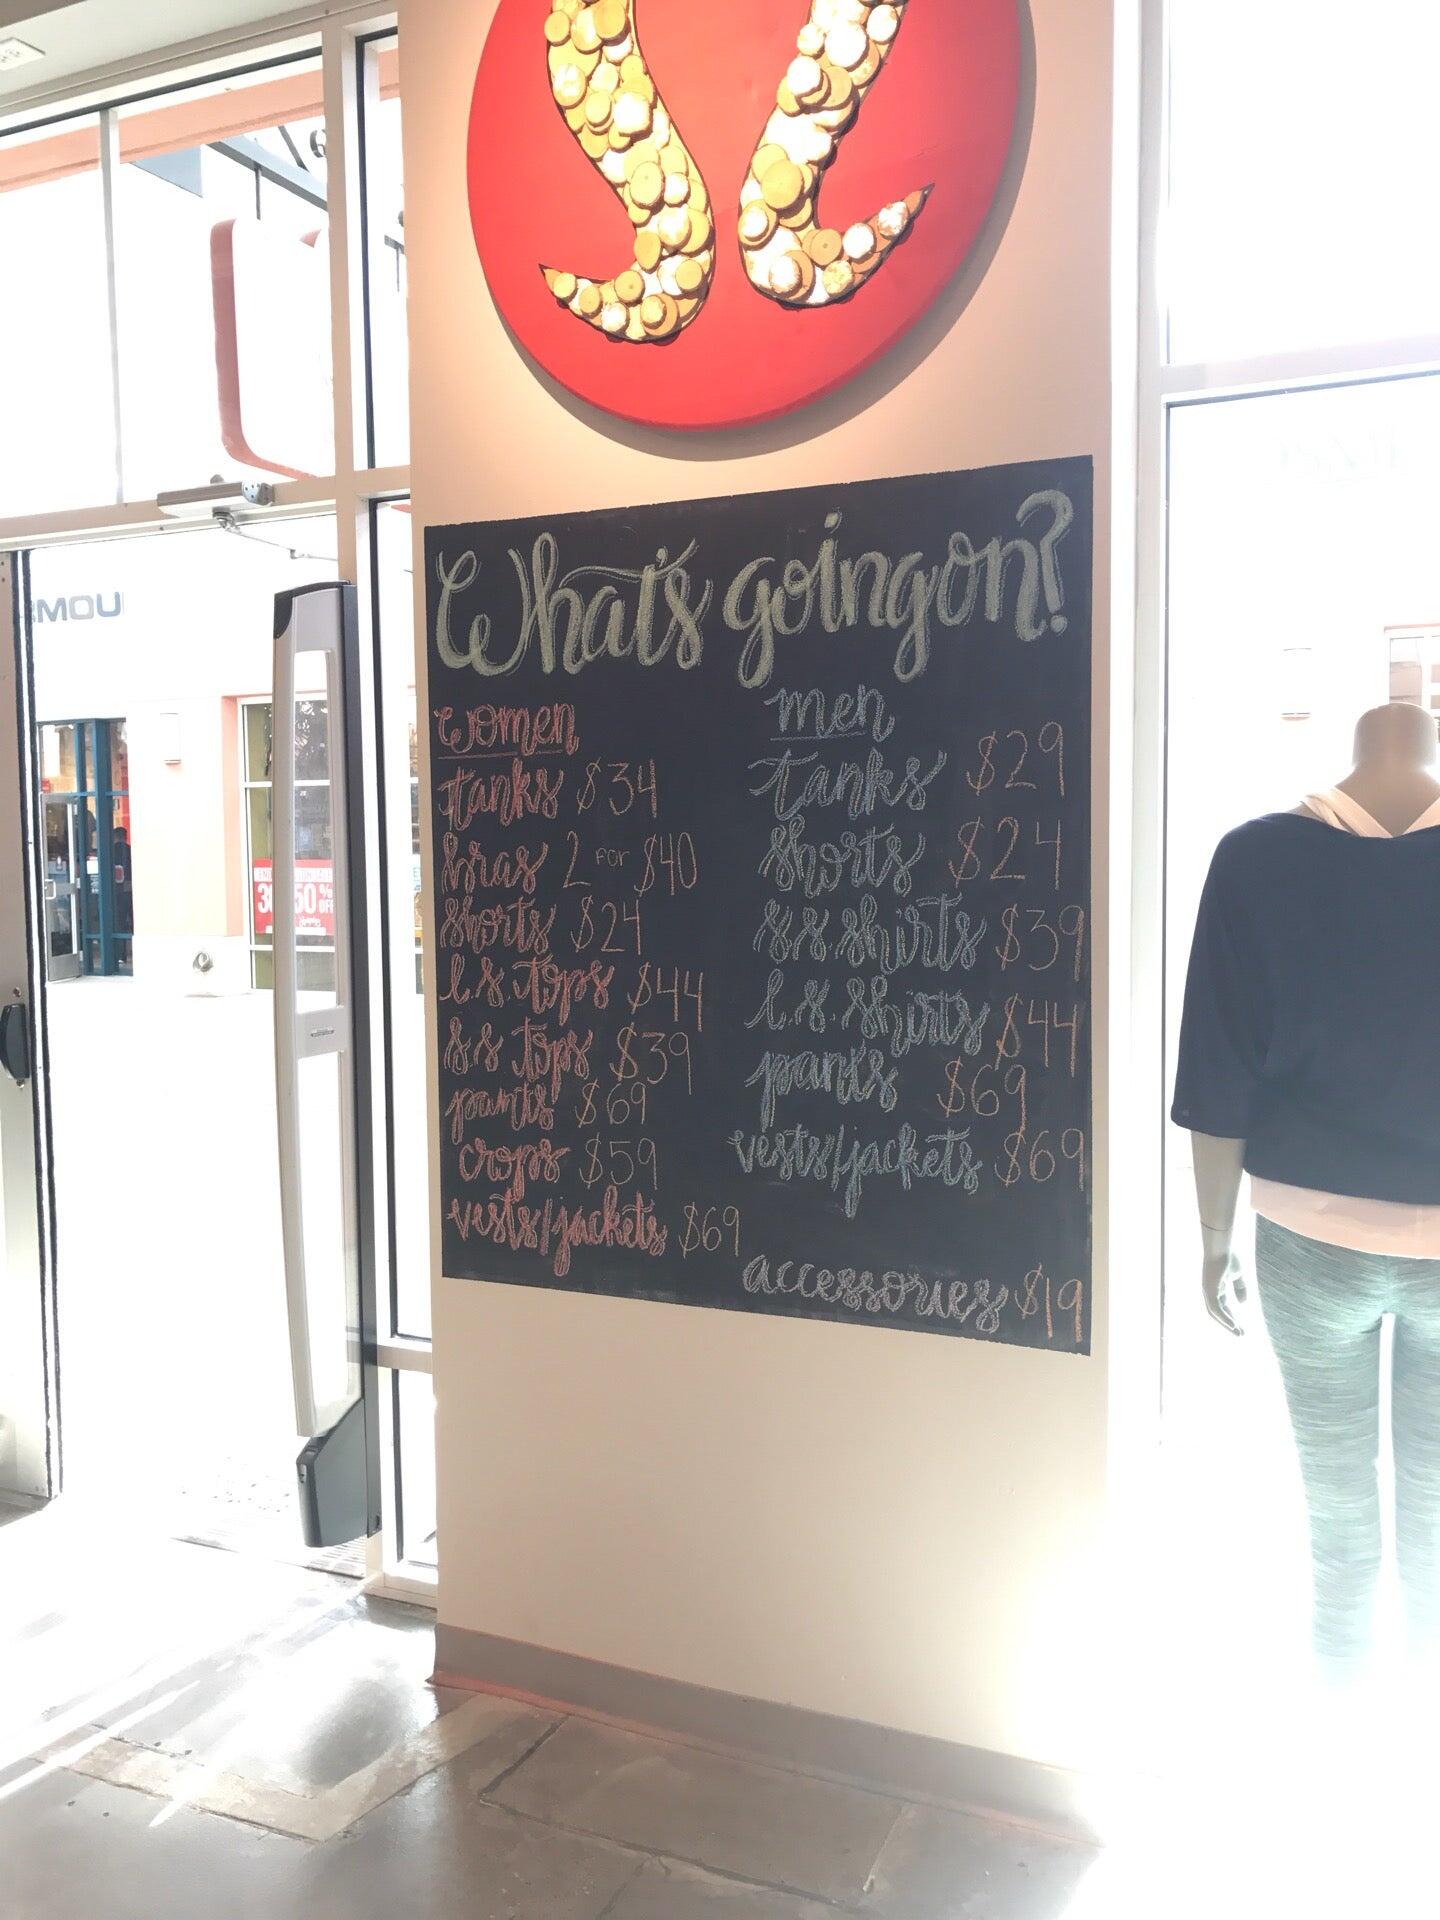 What's going on?
women
tanks $34
bras 2 FOR $40
shorts $24
l.s. tops $44
s.s tops $39
pants $69
crops $59
vests/jackets $69
men
tanks $29
shorts $24
s.s. shirts $39
l.s. shirts $44
pants $69
vests/jackets $69
accessories $19
RMOU
50%
OFF